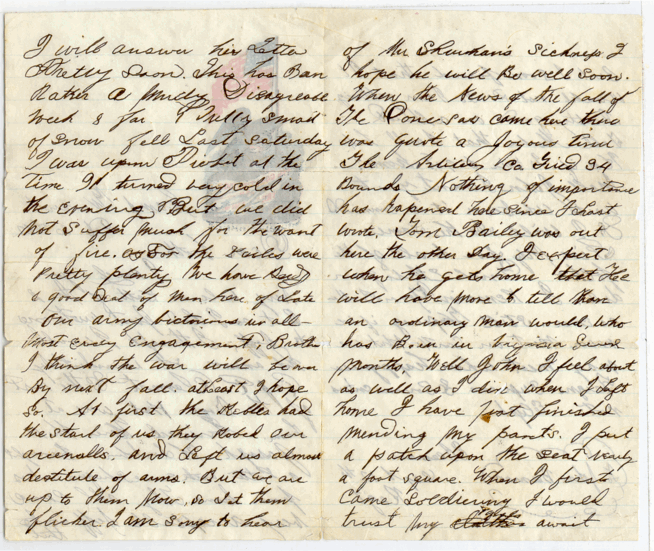 I will answer her Letter
Pretty Soon. This has Ban
Rather a Mudy Disagreeable
Week s far
of Snow fell Last Saturday
I was upon Picket at the
time It turned very cold in
the evening But we did
not Suffer Much for the want
of fire, as For the Railes were
Pretty plenty We have
a good deal of Men here of Late
Our army victorious in all-
most evry Engagement; Brother
I think the war will be over
By next fall. at Least I hope
So. At first the Rebles had
the start of us, they Robed our
arcenalls. and Left us almost
destitute of arms But we are
up to them Now, So Let them
flicker I am Sorry to hear
of Mr Shuman's Sickness I
hope he will Be well Soon.
When the News of the fall of
The came here there
was quote a Joyous time
The Co Fried 34
Rounds Nothing of importance
has hapened here Since I Last
wrote. Tom Bailey was out
here the other Day. I expect
when he gets home that He
will have more to tell than
an ordinary Man would, who
has Been in
months, Well John I feel about
as well as I did when I Left
home I have Just finished
Mending My pants. I put
a patch upon the Seat nearly
a foot square. When I first
came Soldiering I would
trust My await